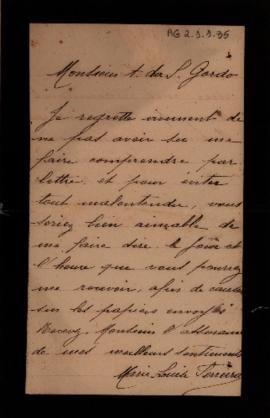 AG 2.3.9.35
Monsieur A. da S. Gordo
Je regrette vivement de
ne pas avoir su me
faire comprendre par
lettre et pour éviter
tout malentendu, vous
seriez bien aimable de
me faire dire le jour et
l'heure que vous pourrez
me recevoir, afin de causer
sur les papiers envoyés
Recevez Monsieur l'assurance
de mes meilleurs sentiments
Marie Louise Ferreira